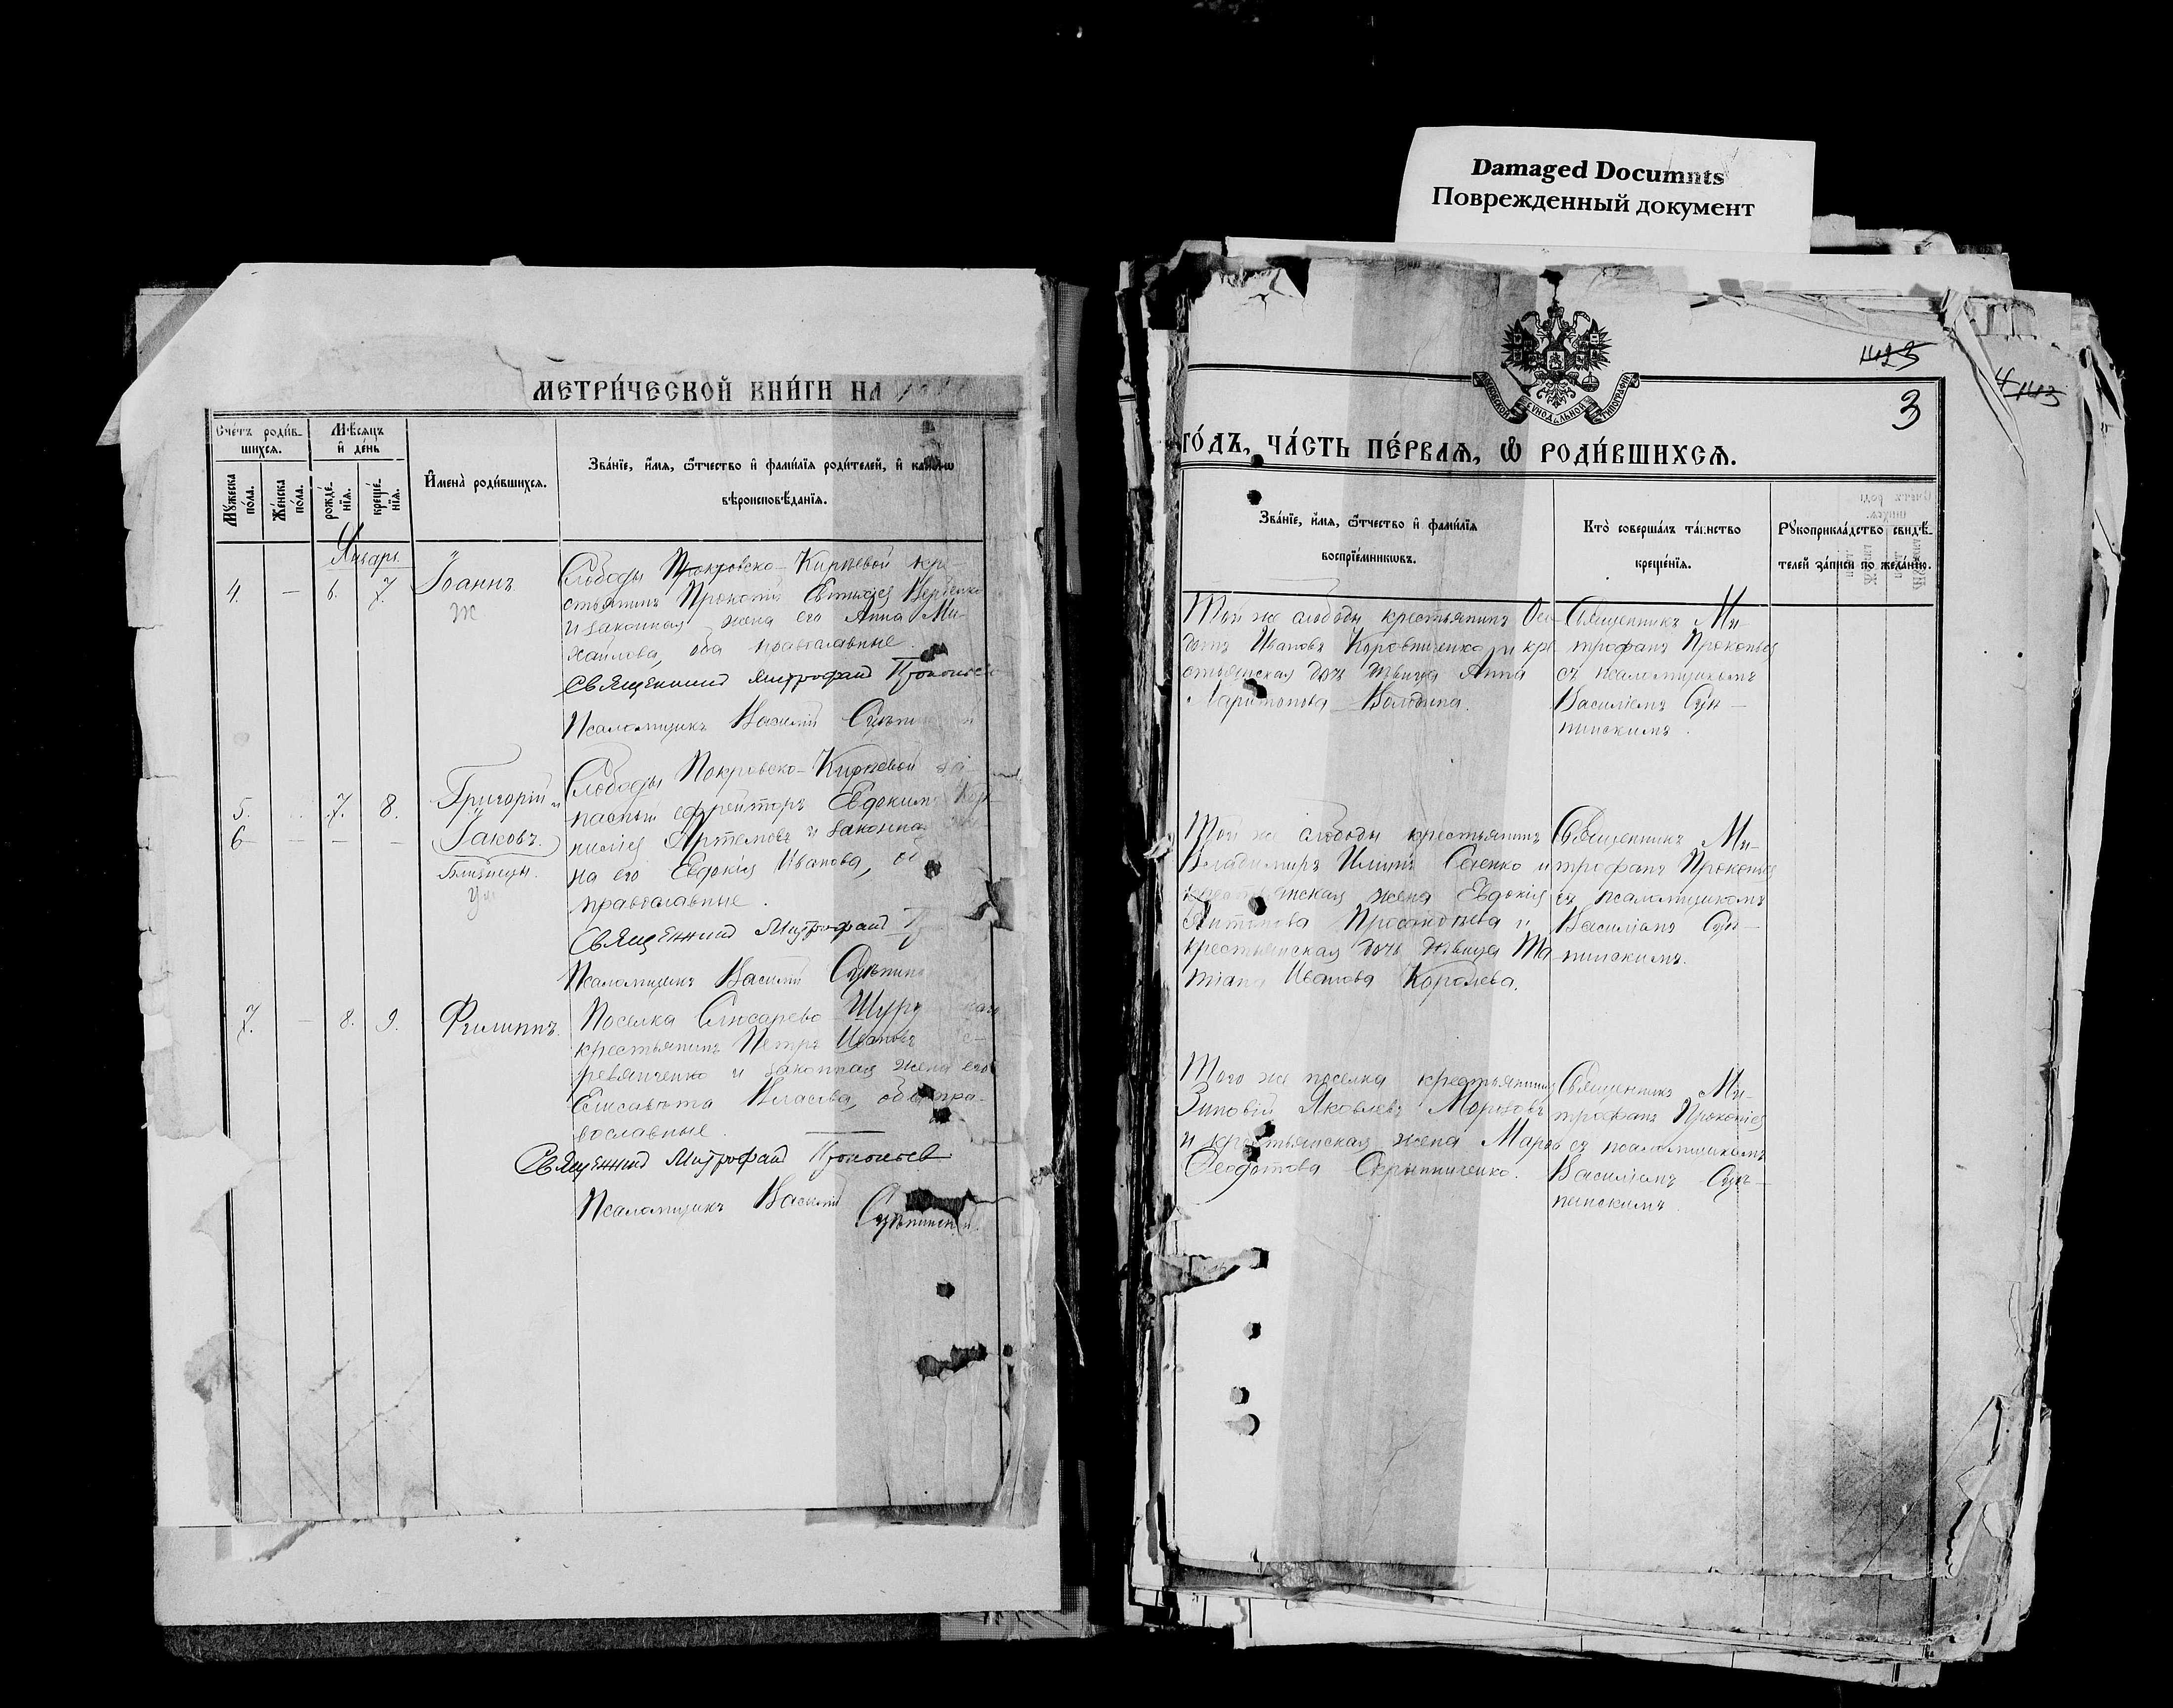 Damaged Documnts
Поврежденный документ
МЕТРИ́ЧЕСКОЙ КНИ́ГИ НА
Сче́тъ роди́в-
шихся.
Мѣсяцъ
и де́нь
Мꙋ́жеска
по́ла.
Же́нска
по́ла.
рожде́-
нїя.
креще́-
нїя.
И҆мена̀ роди́вшихся.
Зва́нїе, и҆́мя, ѻ҆́тчество и҆ фами́лїя роди́телей, и҆ како́гѡ
вѣроисповѣ́данїя.
Январь.
4. — 6. 7. Іоаннъ
Слободы Покровско-Кирѣевой кре
стьянинъ Прокопій
и законная жена его Анна Ми-
хаилова, оба православные.
Священникъ Митрофанъ Прокопьев
Псаломщикъ Василій
5. 7. 8. Григорій и
6 — — — Іаковъ.
Близнецы.
Слободы Покровско-Кирѣевой за
пасный ефрейторъ Евдокимъ
Артемовъ и законная же
на его Евдокія Иванова, об
православные.
Священникъ Митрофанъ
Псаломщикъ Василій
7. — 8. 9. Филиппъ.
Поселка Слюсарево
крестьянинъ Петръ Ивановъ
и законная жена его
Елисавета Власова, оба пра-
вославные.
Священникъ Митрофанъ Прокопьев
Псаломщикъ Василій
1423
4 1143
3
ГО́ДЪ, ЧА́СТЬ ПЕ́РВАЯ, Ѽ РОДИ́ВШИХСЯ.
Зва́нїе, и҆́мя, ѻ҆́тчество и҆ фами́лїя
воспрїе́мникѡвъ.
Кто̀ соверша́лъ та́инство
креще́нїя.
Рꙋкоприкла́дство свидѣ́-
телей за́писи по жела́нїю.
Той же слободы крестьянинъ Ѳео
дотъ Ивановъ и кре
стьянская дочь дѣвица Анна
Харитонова Колодина.
Священникъ Ми-
трофанъ Прокопьев
съ псаломщикомъ
Василіемъ
Той же слободы крестьянинъ
Владимиръ Ильинъ и
крестьянская жена Евдокія
Антонова и
крестьянская дочь дѣвица Та-
тіана Иванова Королева.
Священникъ Ми-
трофанъ Прокопьев
съ псаломщикомъ
Василіемъ
Того же поселка крестьянинъ
Зиновій Яковлевъ Морозовъ
и крестьянская жена Марѳа
Ѳеодотова Скрыпниченко.
Священникъ Ми-
трофанъ Прокопіев
съ псаломщикомъ
Василіемъ